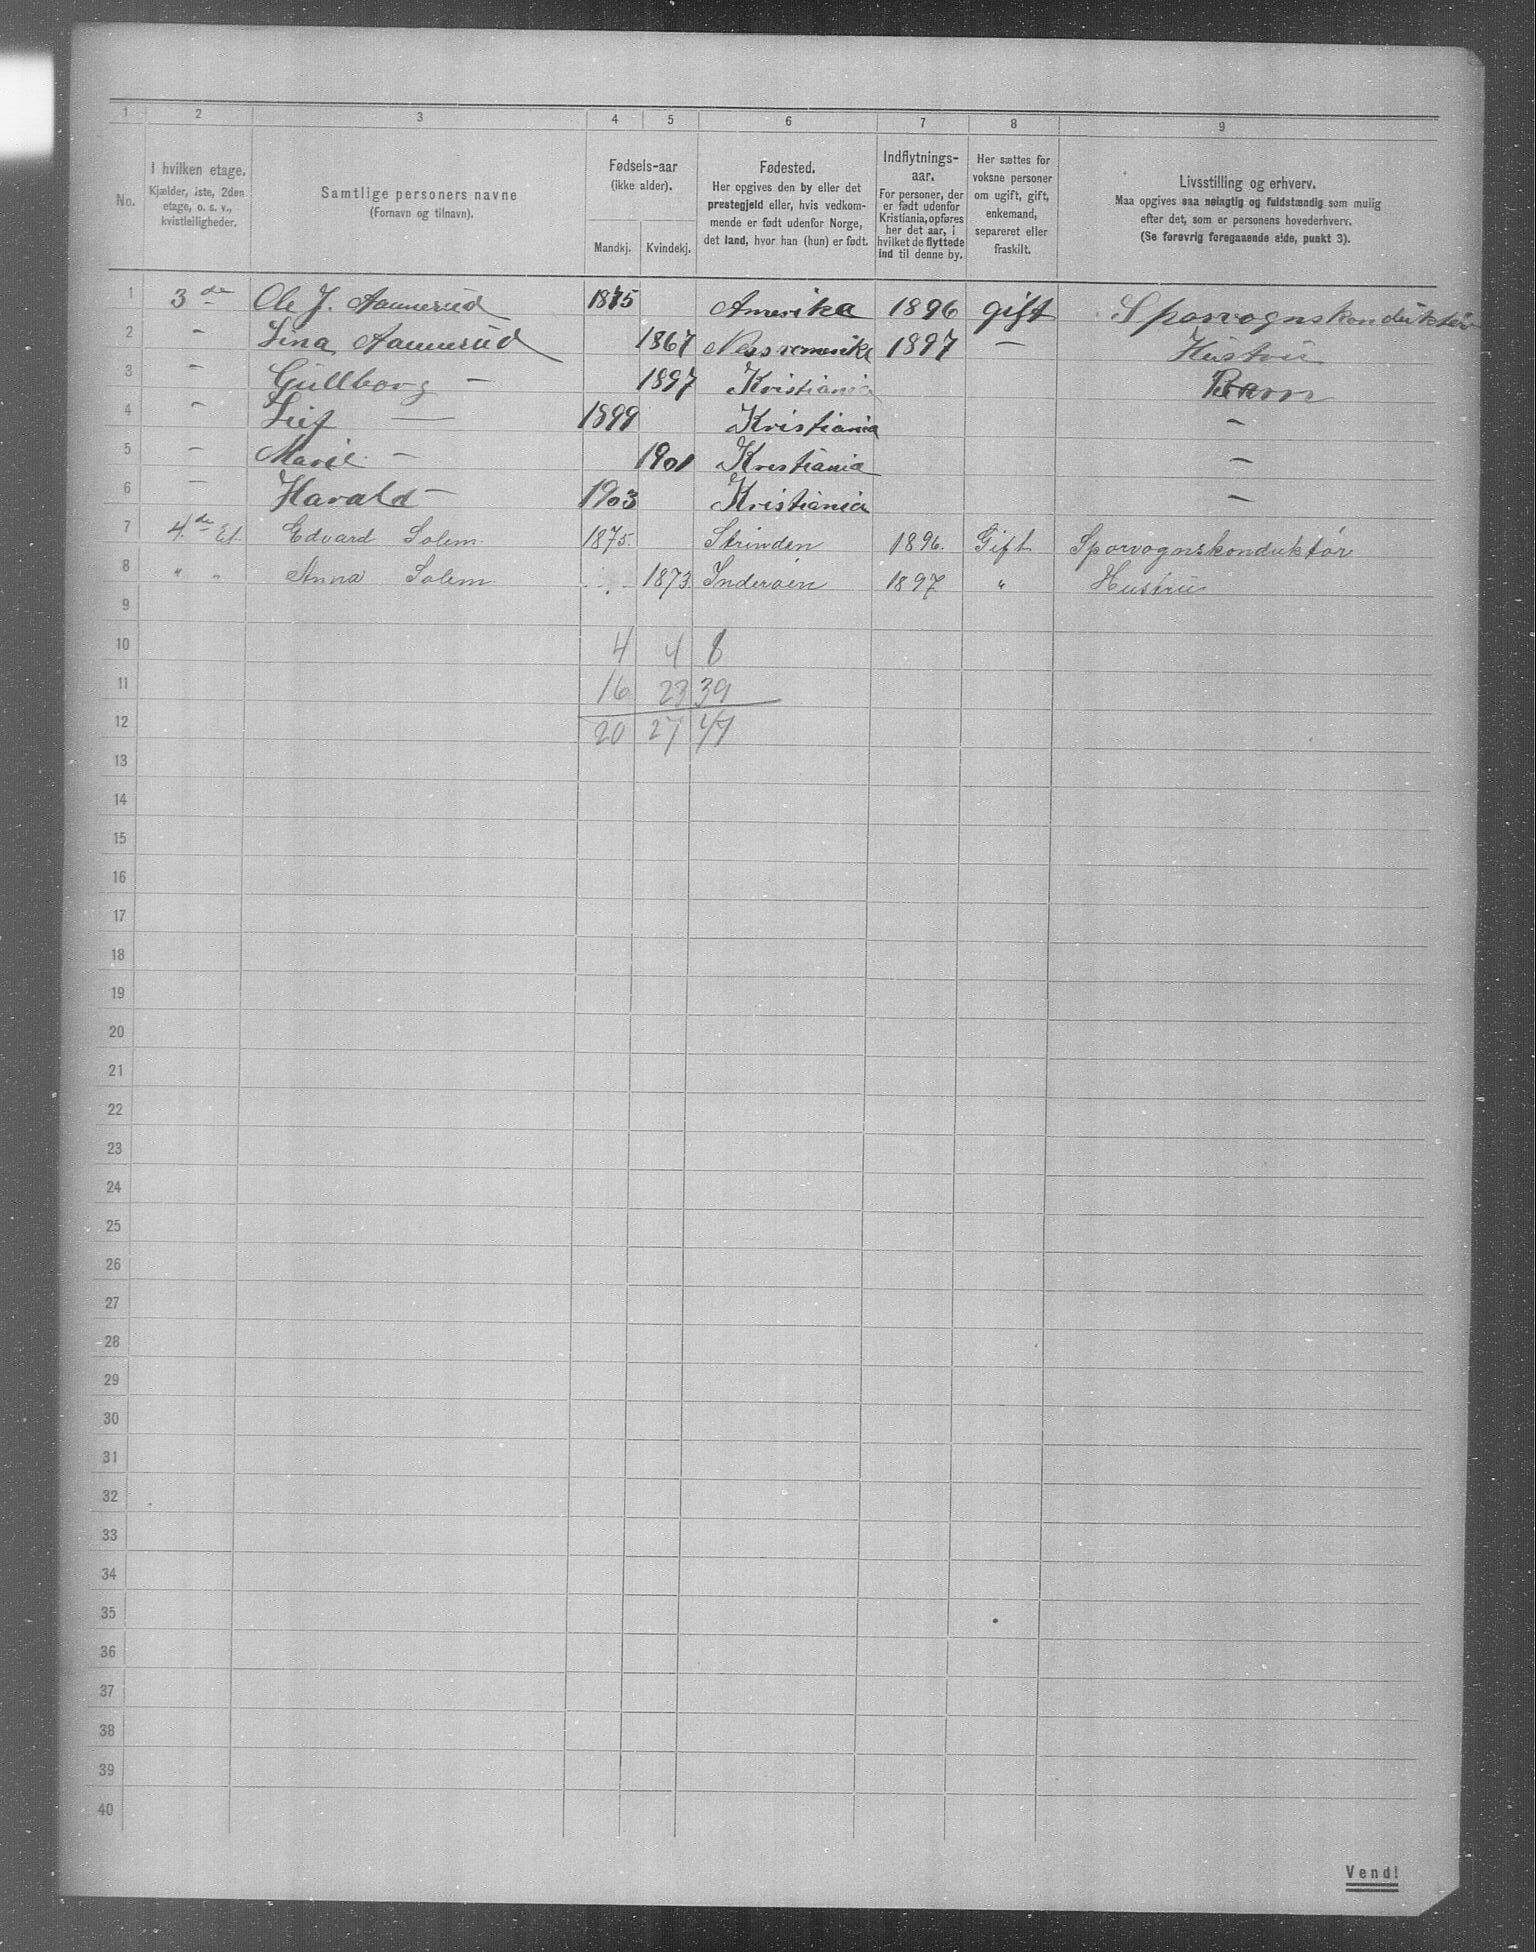 1 2 3 4 5 6 7 8 9
No. I hvilken etage. Kjælder, iste, 2den etage, o. s. v., kvistleiligheder. Samtlige personers navne (Fornavn og tilnavn). Fødsels-aar (ikke alder). Mandkj. Kvindekj. Fødested. Her opgives den by eller det prestegjeld eller, hvis vedkommende er født udenfor Norge, det land, hvor han (hun) er født. Indflytnings-aar. For personer, der er født udenfor Kristiania, opføres her det aar, i hvilket de flyttede ind til denne by. Her sættes for voksne personer om ugift, gift, enkemand, separeret eller fraskilt. Livsstilling og erhverv. Maa opgives saa nøiagtig og fuldstændig som mulig efter det, som er personens hovederhverv. (Se forøvrig foregaaende side, punkt 3).
1 3 de Ole J. Aamerud 1875 Amerika 1896 gift Sporvognskonduktør
2 - Lina Aamerud 1867 Nes romerike 1897 - Hustru
3 - Gullborg - 1897 Kristiania Barn
4 - Lief - 1899 Kristiania -
5 - Marie - 1901 Kristiania -
6 - Harald - 1903 Kristiania -
7 4. de Et. Edvard Solem 1875. Strinden 1896. Gift Sporvognskonduktør
8 " " Anna Solem 1873. Inderøen 1897 " Hustru
9
10 4 4 8
11 16 23 39
12 20 27 47
13
14
15
16
17
18
19
20
21
22
23
24
25
26
27
28
29
30
31
32
33
34
35
36
37
38
39
40
Vend!